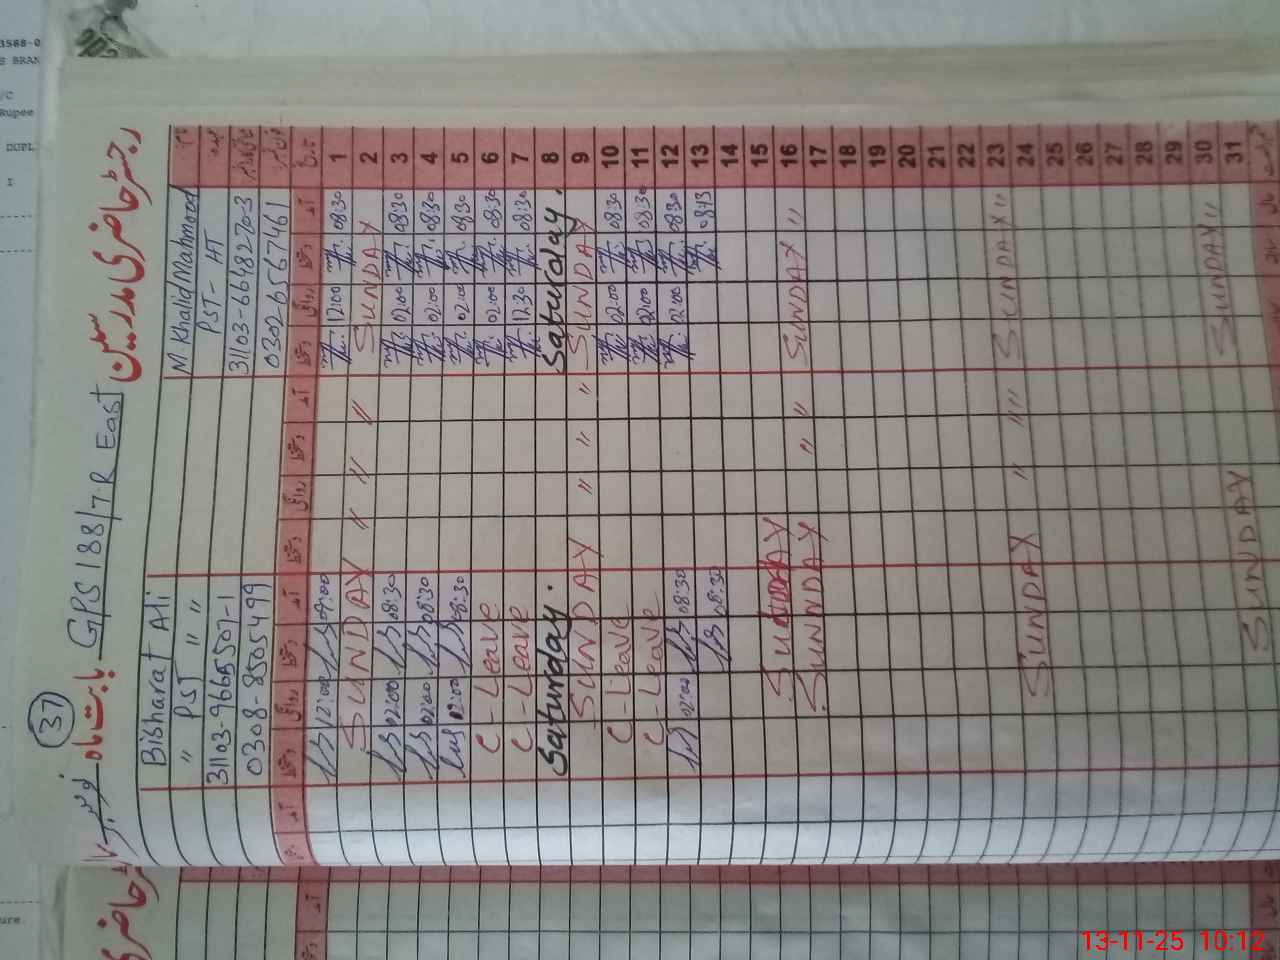 37
رجسٹر حاضری مدرسین
بابت ماہ نومبر GPS 188/7.R East
نام M. Khalid Mahmood Bisharat Ali
عہدہ PST - HT " PST " "
31103-6648270-3 31103-9665507-1
0302-6567461 0308-8505499
تاریخ آمد دستخط روانگی دستخط آمد دستخط روانگی دستخط آمد دستخط روانگی دستخط آمد
1 08:30 12:00 09:00 12:00
2 SUNDAY " " " SUNDAY
3 08:30 02:00 08:30 02:00
4 08:30 02:00 08:30 02:00
5 08:30 02:00 08:30 02:00
6 08:30 02:00 C-Leave
7 08:30 12:30 C-Leave
8 Saturday. Saturday.
9 SUNDAY " " " SUNDAY
10 08:30 02:00 C-Leave
11 08:30 02:00 C-Leave
12 08:30 02:00 08:30 02:00
13 0843 08:30
14
15
16 SUNDAY " " " SUNNDAY
17
18
19
20
21
22
23 SUNDAY " " " SUNDAY
24
25
26
27
28
29
30 SUNDAY " SUNDAY
31
13-11-25 10:12
3588-0
BRAN
/C
Rupee
DUPL
ure